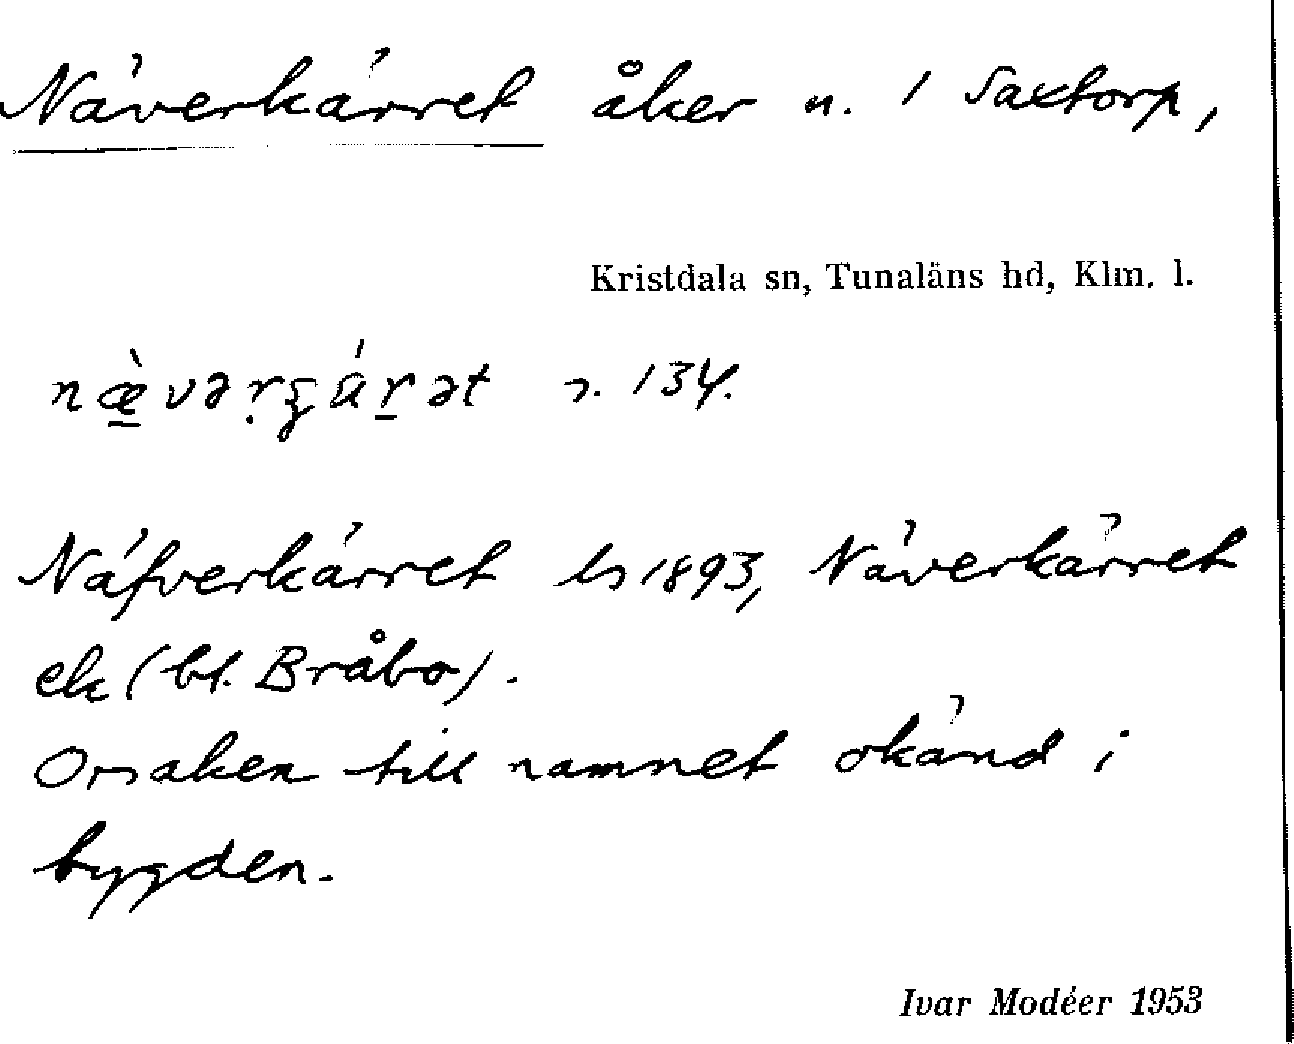 Näverkärret åker n. / Saxtorp,
Kristdala sn, Tunaläns hd, Klm. l.
134.
Näfverkärret 1893, Näverkärret
ek (bl. Bråbo).
Orsaken till namnet okänd i
bygden.
Ivar Modéer 1953